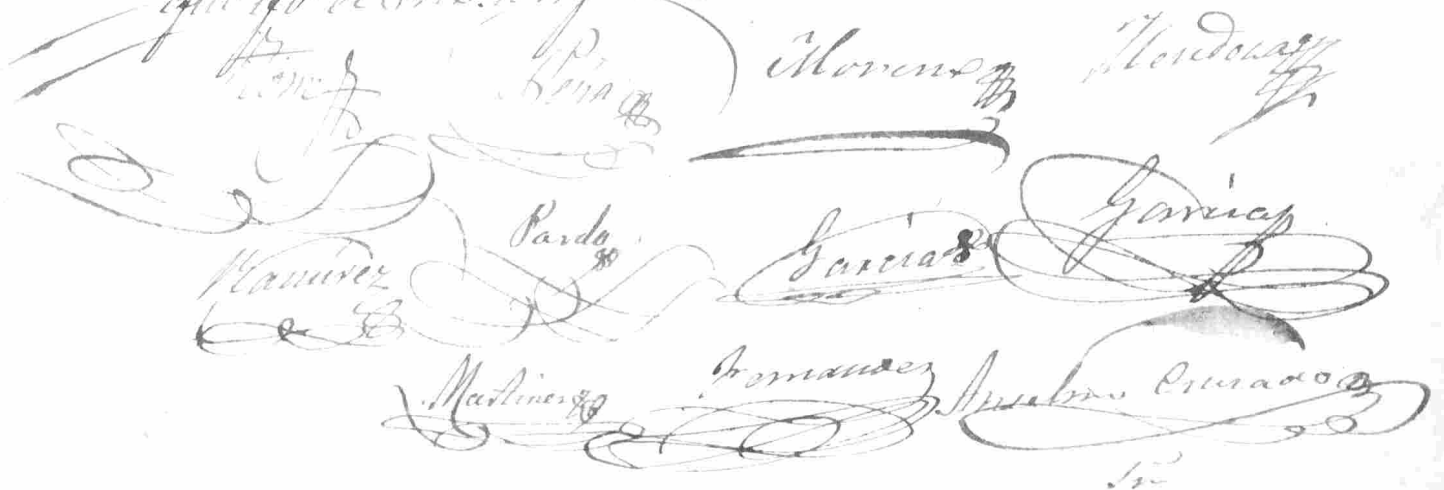 Peña Moreno Mendoza
Ramirez Pardo Garcia Garcia
Martinez Fernandez Anselmo Cruzado